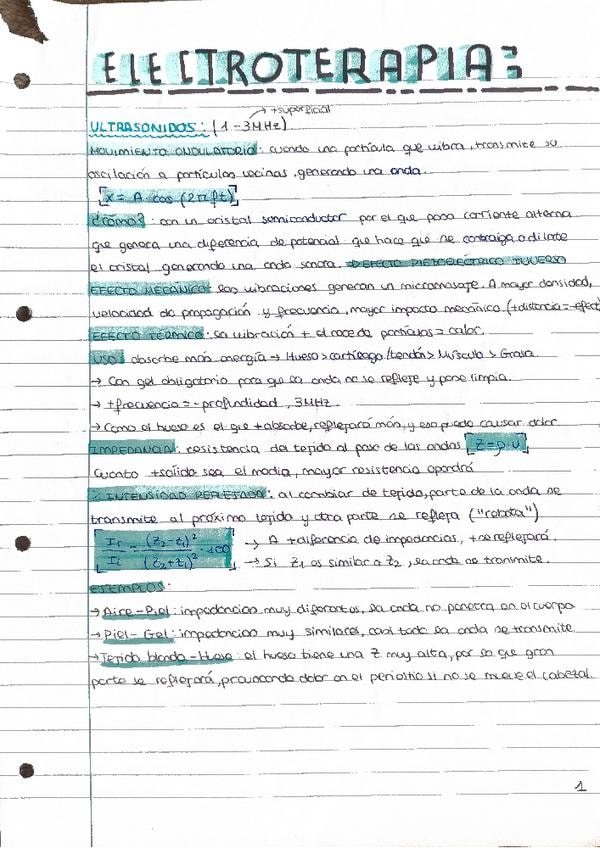 ELECTROTERAPIA:
→ + superficial
ULTRASONIDOS: (1-3MHz)
MOVIMIENTO ONDULATORIO: cuando una partícula que vibra, trasmite su
oscilación a partículas vecinas, generando una onda.
[x = A cos (2πft)]
¿cómo?: con un cristal semiconductor por el que pasa corriente alterna
que genera una diferencia de potencial que hace que se contraiga o dilate
el cristal generando una onda sonora. → EFECTO PIEZOELÉCTRICO INVERSO
EFECTO MECÁNICO: las vibraciones generan un micromasaje. A mayor densidad,
velocidad de propagación y frecuencia, mayor impacto mecánico (+distancia=-efect
EFECTO TÉRMICO: la vibración + el roce de partículas = calor.
USO: absorbe más energía → Hueso > cartílago/tendón > Músculo > Grasa
→ Con gel obligatorio para que la onda no se refleje y pase limpia.
→ +frecuencia = - profundidad, 3MHz.
→ Como el hueso es el que +absorbe, reflejará más, y eso puede causar dolor
IMPEDANCIA: resistencia del tejido al paso de las ondas [Z=ρ·v]
Cuanto +sólido sea el medio, mayor resistencia opondrá
% INTENSIDAD REFLEJADA: al cambiar de tejido, parte de la onda se
transmite al próximo tejido y otra parte se refleja ("rebota")
[Ir/Ii = (Z₂-Z₁)²/(Z₂+Z₁)² ·100] → A +diferencia de impedancias, +se reflejará.
→ Si Z₁ es similar a Z₂, la onda se transmite.
EJEMPLOS:
→ Aire-Piel: impedancias muy diferentes, la onda no penetra en el cuerpo
→ Piel-Gel: impedancias muy similares, casi toda la onda se transmite
→ Tejido blando-Hueso: el hueso tiene una Z muy alta, por lo que gran
parte se reflejará, provocando dolor en el periostio si no se mueve el cabezal.
1